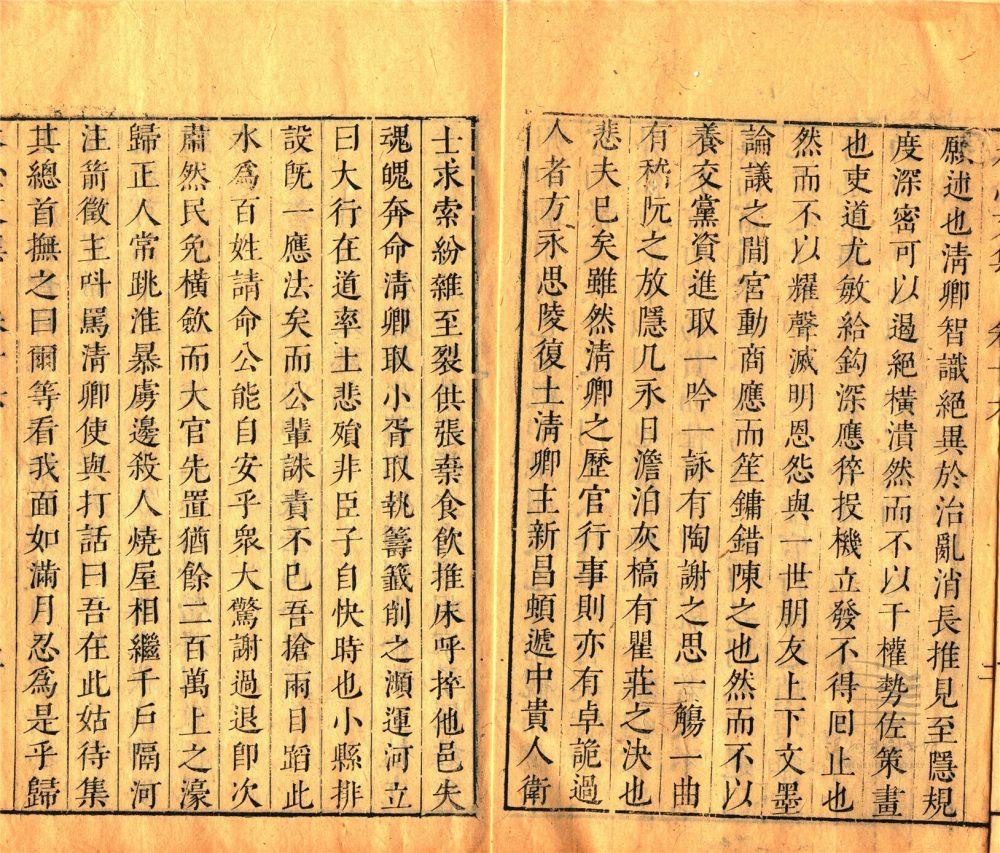 願述也清卿智識絕異於治亂消長推見至隱規
度深密可以遏絕橫潰然而不以干權勢佐策畫
也吏道尤敏給鈎深應猝投機立發不得囘止也
然而不以耀聲滅明恩怨與一世朋友上下文墨
論議之間宮動商應而笙鏞錯陳之也然而不以
養交黨資進取一吟一詠有陶謝之思一觴一曲
有嵇阮之放隱几永日澹泊灰槁有瞿莊之決也
悲夫已矣雖然淸卿之歷官行事則亦有卓詭過
人者方永思陵復土淸卿主新昌頓遞中貴人衛
士求索紛雜至裂供張棄食飲推床呼捽他邑失
魂魄奔命清卿取小胥取執籌籖削之瀕運河立
曰大行在道率土悲殞非臣子自快時也小縣排
設旣一應法矣而公輩誅責不已吾搶雨日蹈此
水爲百姓請命公能自安乎衆大驚謝過退卽次
肅然民免橫歛而大官先置猶餘二百萬上之濠
歸正人常跳淮暴虜邊殺人燒屋相繼千戶隔河
注箭徵主呌駡淸卿使與打話曰吾在此姑待集
其總首撫之曰爾等看我面如滿月忍爲是乎歸